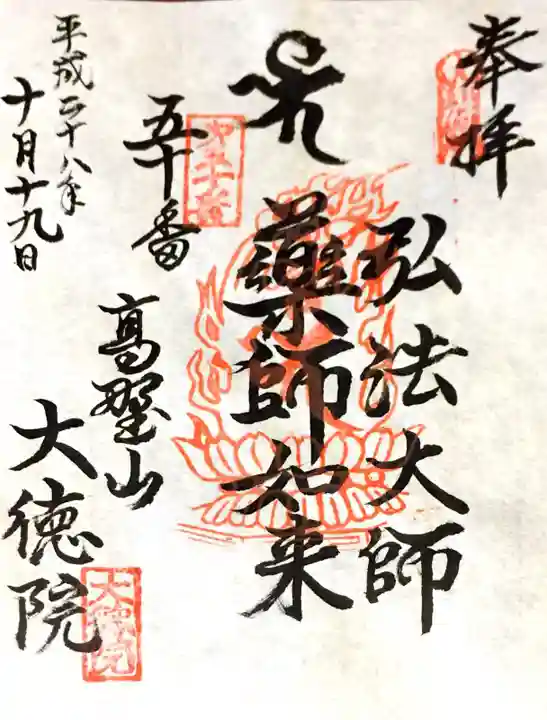 奉拝
弘法大師
藥師如来
五十番
高野山
大徳院
平成二十八年
十月十九日
大徳院